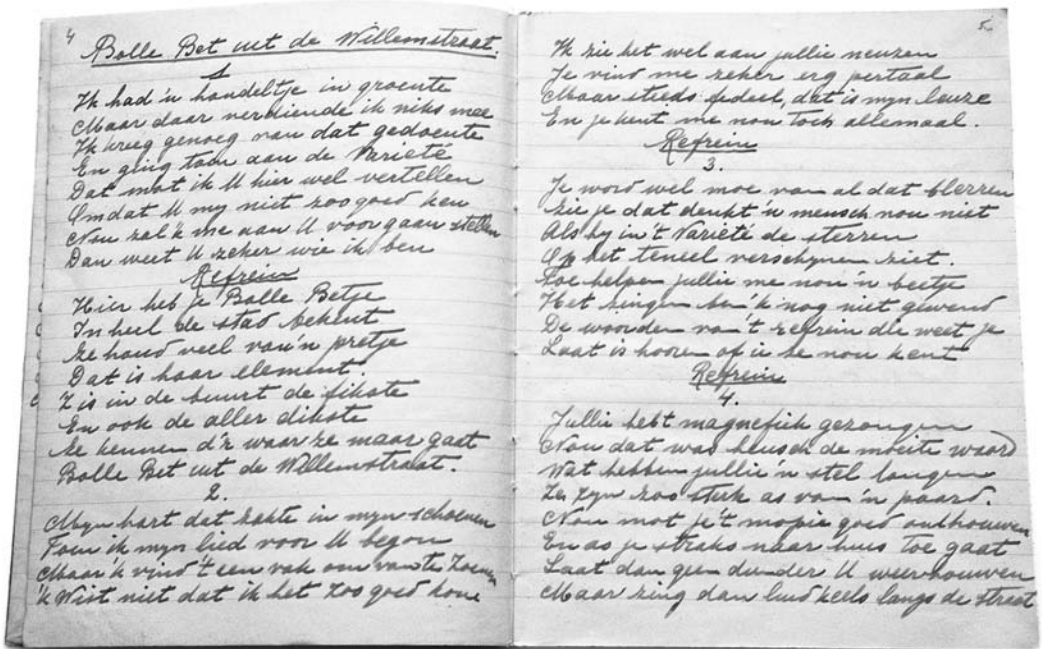 4
Bolle Bet uit de Willemstraat.
1
Ik had 'n handeltje in groente
Maar daar verdiende ik niks mee
Ik kreeg genoeg van dat gedoente
En ging toen aan de Varieté
Dat mot ik U hier wel vertellen
Omdat U my niet zoo goed ken
Nou zal 'k me aan U voor gaan stellen
Dan weet U zeker wie ik ben
Refrein
Hier heb je Bolle Betje
In heel de stad bekent
Ze houd veel van 'n pretje
Dat is haar element.
Z is in de buurt de fikste
En ook de aller dikste
Ze kennen d'r waar ze maar gaat
Bolle Bet uit de Willemstraat.
2.
Myn hart dat zakte in myn schoenen
Toen ik myn lied voor U begon
Maar 'k vind 't een vak om van te zoenen
'k Wist niet dat ik het zoo goed kon
5.
Ik zie het wel aan jullie neuzen
Je vind me zeker erg pertaal
Maar steeds fideel, dat is myn leuze
En je kent me nou toch allemaal.
Refrein
3.
Je word wel moe van al dat blerren
Zie je dat denkt 'n mensch nou niet
Als hy in 't Varieté de sterren
Op het toneel verschynen ziet.
Toe helpen jullie me nou 'n beetje
Het zingen ben 'k nog niet gewend
De woorden van 't refrein die weet je
Laat is hooren of u ze nou kent
Refrein
4.
Jullie hebt magnefiek gezongen
Nou dat was heusch de moeite waard
Wat hebben jullie 'n stel longen
Ze zyn zoo sterk as van 'n paard.
Nou mot je 't mopie goed onthouwen
En as je straks naar huis toe gaat
Laat dan geen donder U weerhouwen
Maar zing dan luid keels langs de straat